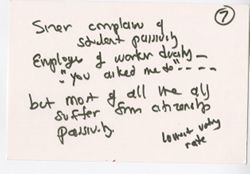 7
complain of
student passivity
Employers of worker
"you asked me to" - - - -
but most of all the
suffer from citizenship
passivity.
lowest voting
rate